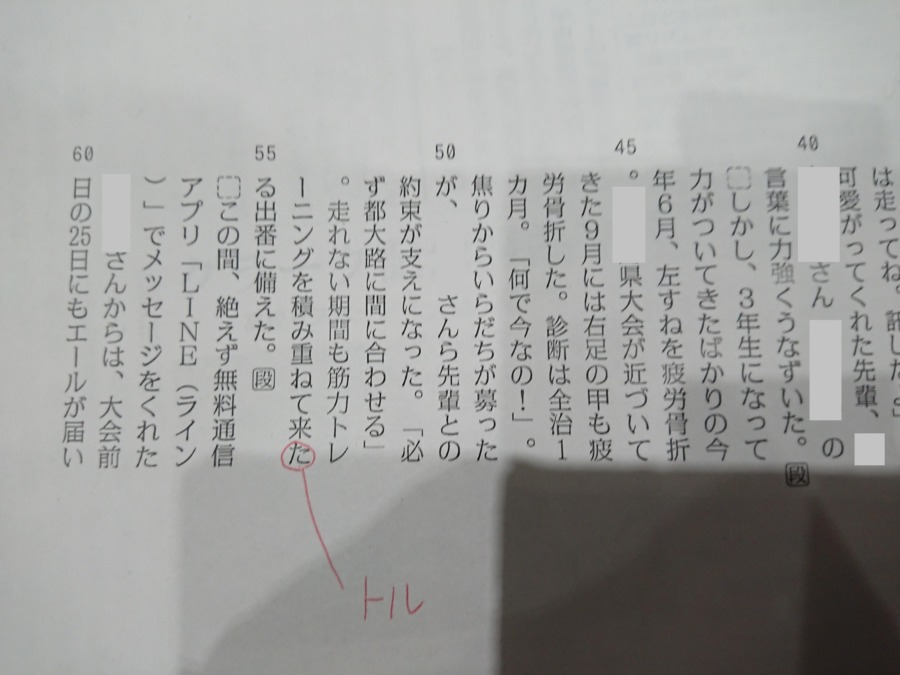 は走ってね。託した。」
可愛がってくれた先輩、
40
さん の
言葉に力強くうなずいた。段
しかし、3年生になって
力がついてきたばかりの今
年6月、左すねを疲労骨折
45
。 県大会が近づいて
きた9月には右足の甲も疲
労骨折した。診断は全治1
カ月。「何で今なの!」。
焦りからいらだちが募った
50
が、 さんら先輩との
約束が支えになった。「必
ず都大路に間に合わせる」
。走れない期間も筋力トレ
ーニングを積み重ねて来た
トル
55
る出番に備えた。段
この間、絶えず無料通信
アプリ「LINE(ライン
)」でメッセージをくれた
さんからは、大会前
60
日の25日にもエールが届い